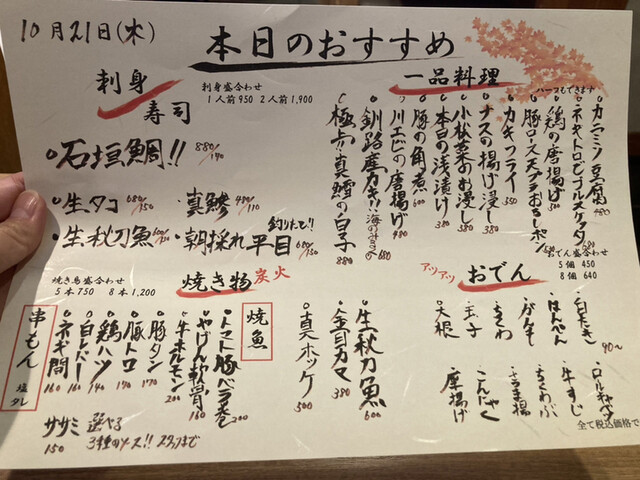 10月21日(木)
本日のおすすめ
刺身
寿司
刺身盛合わせ
1人前950 2人前1,900
石垣鯛!! 880/190
生タコ 680/150
真鯵 480/110
生秋刀魚
釣りたて!!
朝採れ 平目 680/150
一品料理
ハーフもできます
カニミソ豆腐 480
鶏の唐揚げ
豚ロース天プラおろしポン
カキフライ 350
ナスの揚げ浸し 380
小松菜のお浸し
本日の浅漬け
豚の角煮 600
川エビの唐揚げ 480
釧路産カキ!!
極上!!真鱈の白子 880
焼き鳥盛合わせ
5本750 8本1,200
焼き物 炭火
串もん 塩 タレ
ネギ間 160
白レバー 160
鶏ハツ 140
豚トロ 170
豚タン 170
牛ホルモン 200
やげん軟骨 160
トマト豚バラ巻 200
ササミ 150
選べる
3種のソース!!
焼魚
真ホッケ 500
金目カマ 380
生秋刀魚 600
アツアツ おでん
おでん盛合わせ
5個 450
8個 640
90〜
白たき
はんぺん
がんも
ちくわ
玉子
大根
ロールキャベツ
牛すじ
ちくわぶ
さつま揚
こんにゃく
厚揚げ
全て税込価格で